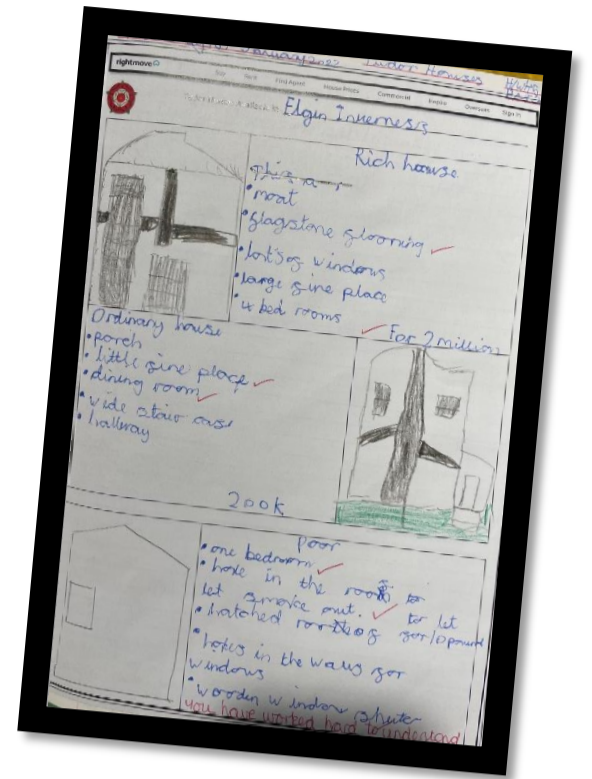 Tudor Houses
rightmove
Find Agent House Prices Commercial Inspire Overseas Sign in
Elgin Inverness
Rich house
• moat
• flagstone flooring
• lots of windows
• large fine place
• 4 bed rooms
For 2 million
Ordinary house
• porch
• little fine place
• dining room
• wide stair case
• hallway
200k
poor
• one bedroom
• hole in the roof to
let smoke out. to let
• hatched roof for 10 pound
• holes in the walls for
windows
• wooden window shutter
you have worked hard to understand